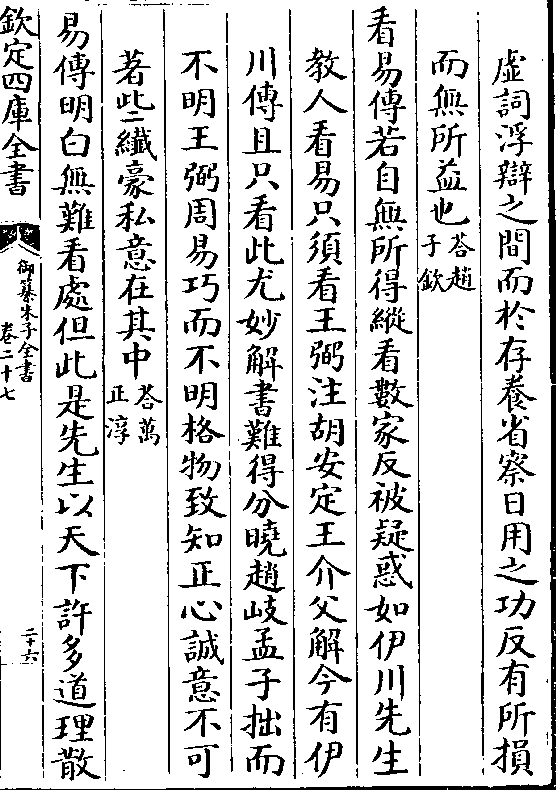 虚詞浮辯之間而於存養省察日用之功反有所損
而無所益也答趙子欽
看易傳若自無所得縱看數家反被疑惑如伊川先生
教人看易只須看王弼注胡安定王介父解今有伊
川傳且只看此尤妙解書難得分曉趙岐孟子拙而
不明王弼周易巧而不明格物致知正心誠意不可
著此二纖豪私意在其中答萬正淳
易傳明白無難看處但此是先生以天下許多道理散
欽定四庫全書
御纂朱子全書
卷二十七
二十六